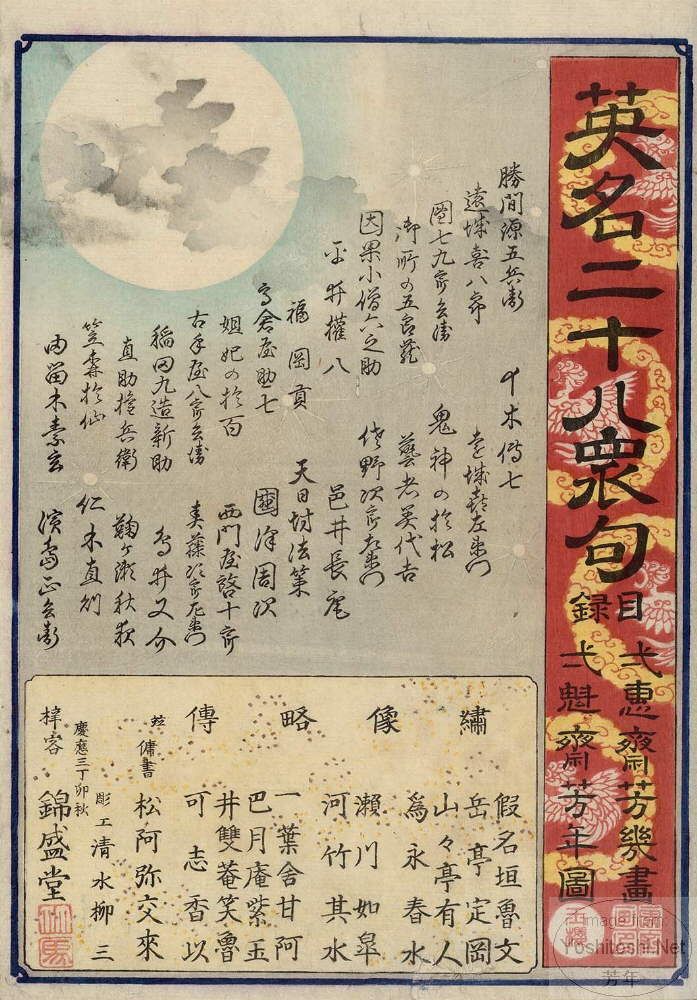 英名二十八衆句
目録
一蕙齋芳幾畫
一魁齋芳年圖
勝間源五兵衛
十木傳七
遠城喜八郎
遠城喜左衛門
團七九郎兵衛
鬼神の於松
御所の五郎蔵
藝者美代吉
因果小僧六之助
佐野次郎左衛門
平井權八
邑井長庵
福岡貢
天日坊法策
高倉屋助七
國澤周次
妲妃の於百
西門屋啓十郎
古手屋八郎兵衛
稲田九造新助
鳥井又介
直助権兵衛
鞠ヶ瀬秋夜
笠森於仙
仁木直則
由留木素玄
濱島正兵衛
繡像略傳
假名垣魯文
岳亭定岡
山々亭有人
為永春水
瀬川如皐
河竹其水
一葉舎甘阿
巴月庵紫玉
井雙菴笑魯
可志香以
傭書
松阿弥交來
彫工清水柳三
慶應三丁卯秋
梓客
錦盛堂
Image from:
Yoshitoshi.Net
芳年